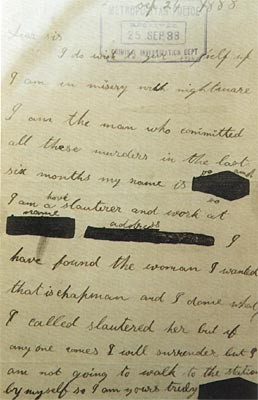 Sep 24 1888
METROPOLITAN POLICE
RECEIVED
25 SEP 88
CRIMINAL INVESTIGATION DEPT
Dear sir
I do wish to give myself up
I am in misery with nightmare
I am the man who committed
all these murders in the last
six months my name is so and
so
I am a horse slauterer and work at
name address I
have found the woman I wanted
that is chapman and I done what
I called slautered her but if
any one comes I will surrender but I
am not going to walk to the station
by myself so I am yours truly